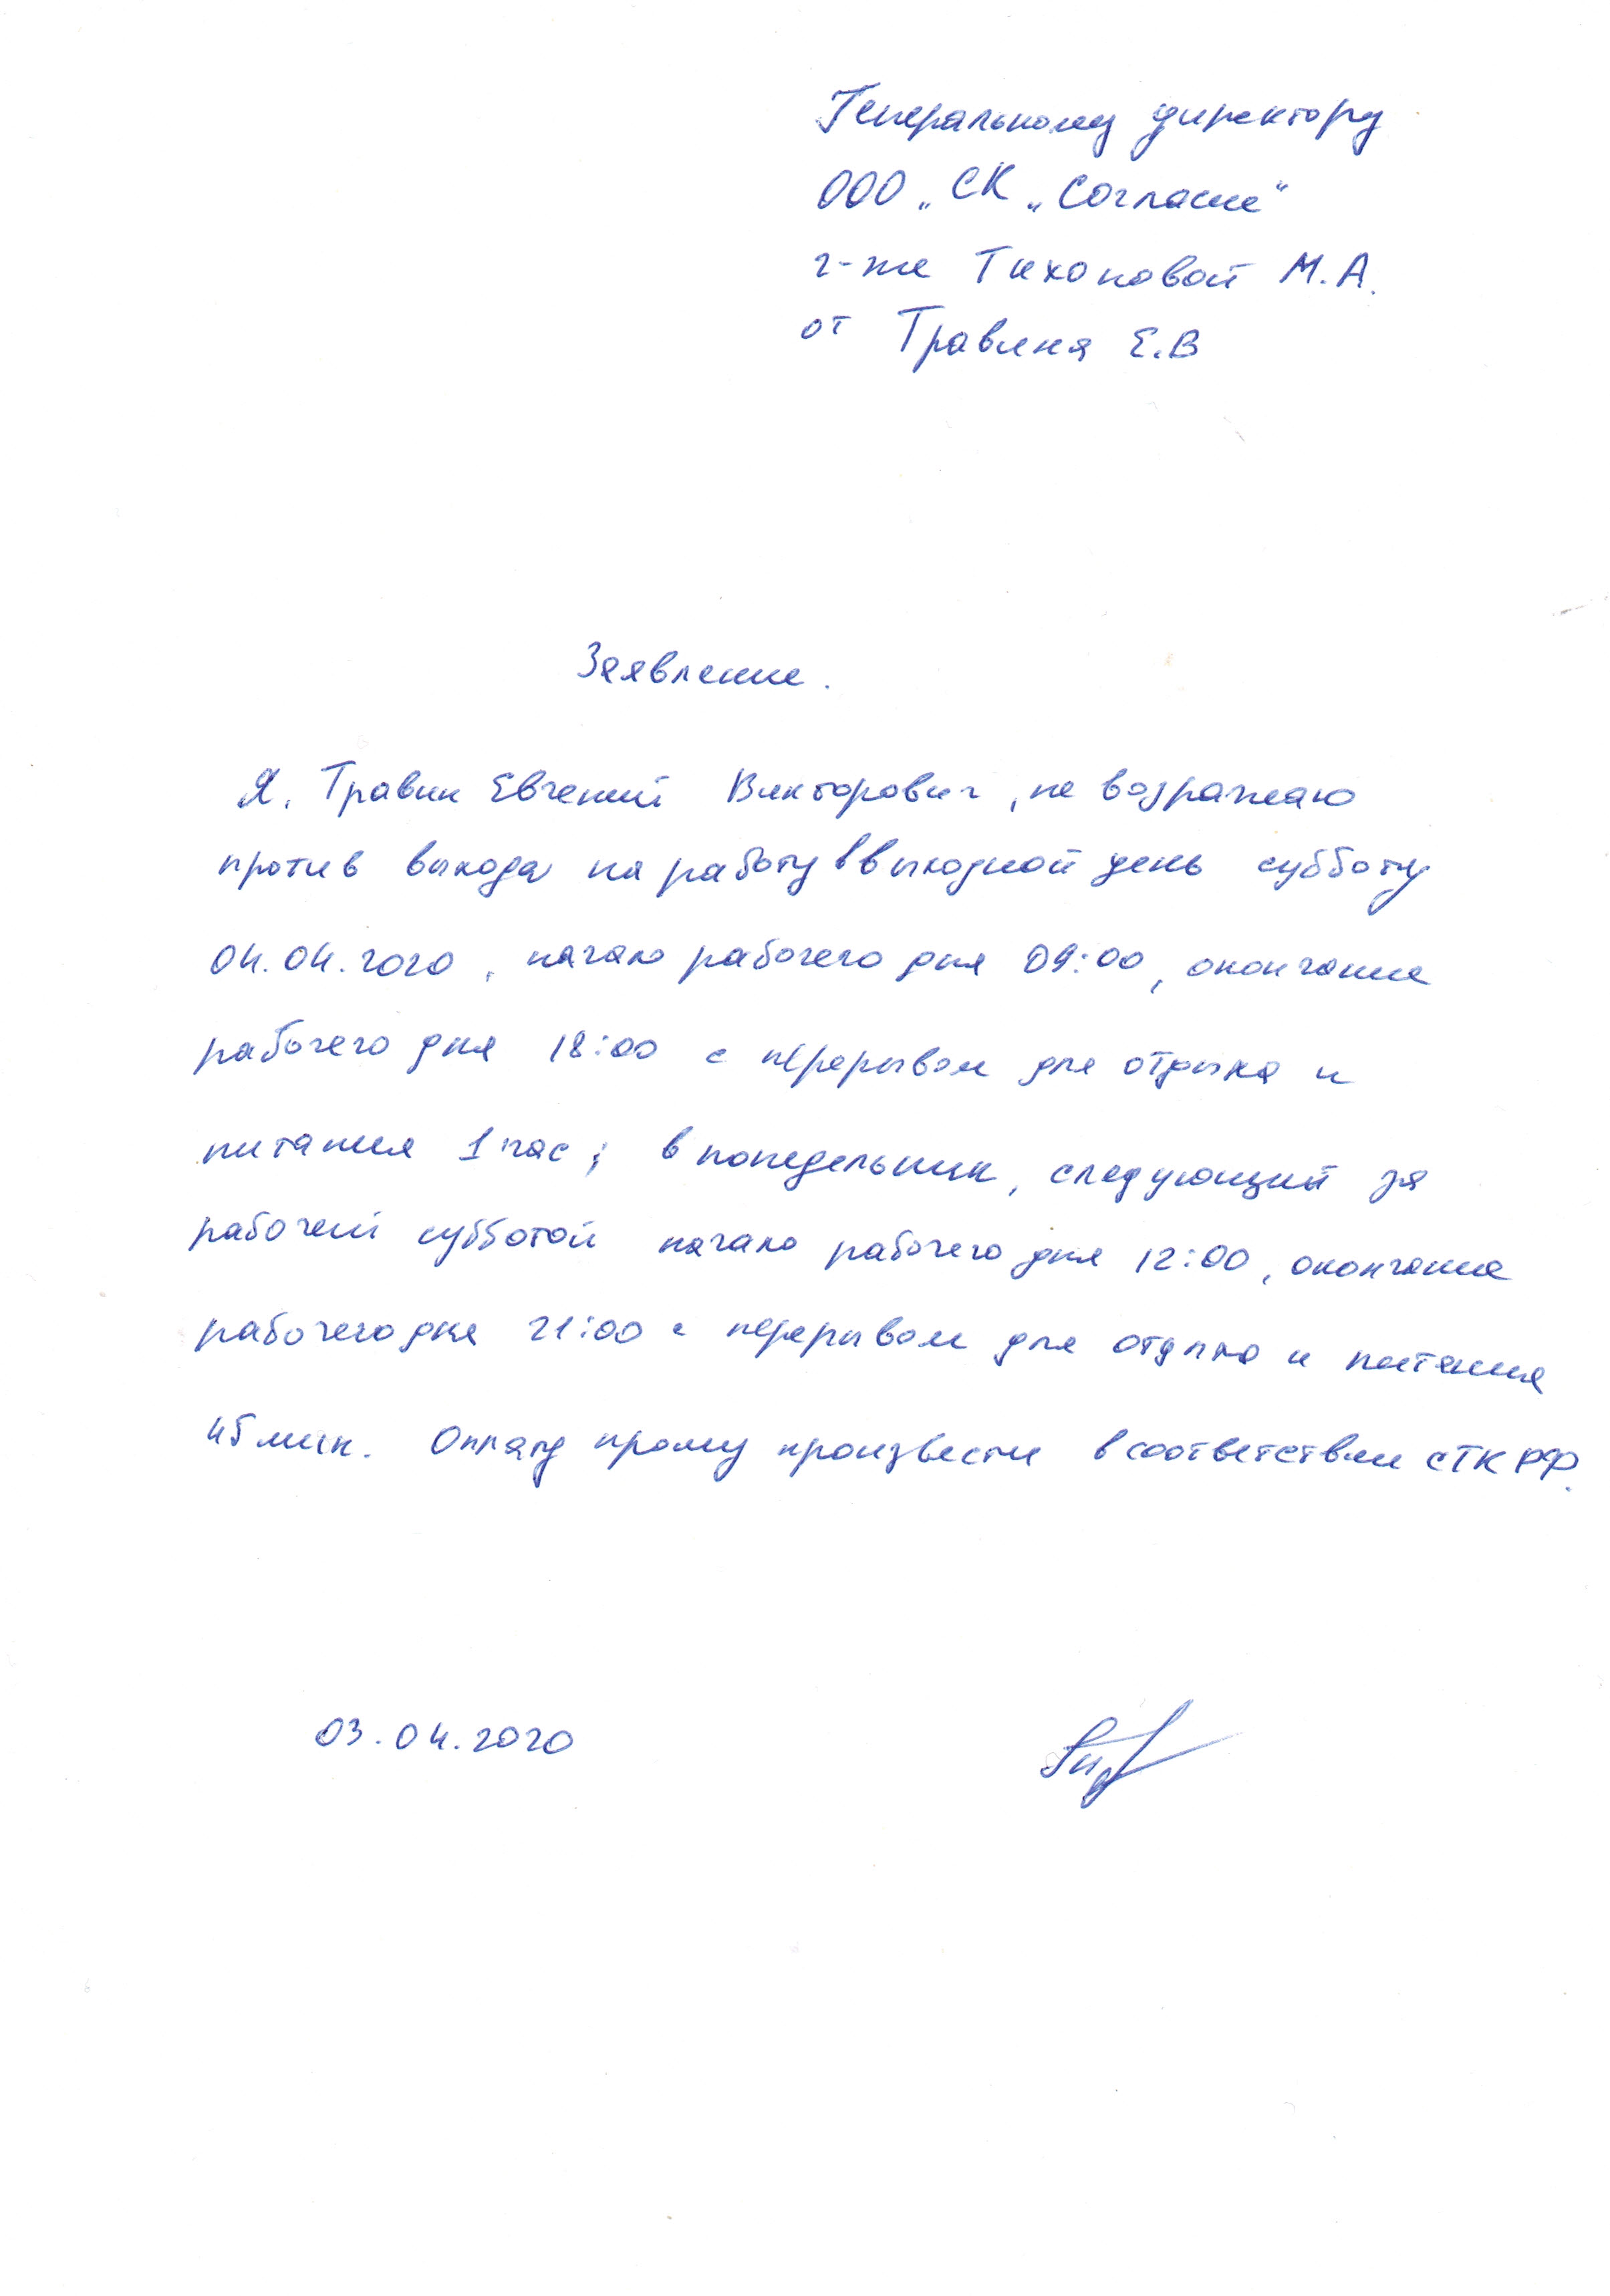 Генеральному директору
ООО „СК „Согласие“
г-же Тихоновой М.А.
от Травина Е.В
Заявление.
Я, Травин Евгений Викторович, не возражаю
против выхода на работу в выходной день субботу
04.04.2020, начало рабочего дня 09:00, окончание
рабочего дня 18:00 с перерывом для отдыха и
питания 1 час; в понедельник, следующий за
рабочей субботой начало рабочего дня 12:00, окончание
рабочего дня 21:00 с перерывом для отдыха и питания
45 мин. Оплату прошу произвести в соответствии с ТК РФ.
03.04.2020